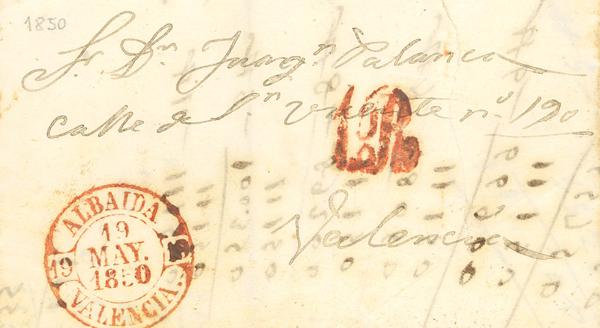 1850
Sr. Dn. Juaqn. Palanca
calle de Sn. Vicente nº. 190
Valencia
ALBAIDA
19
MAY.
1850
19 19
VALENCIA.